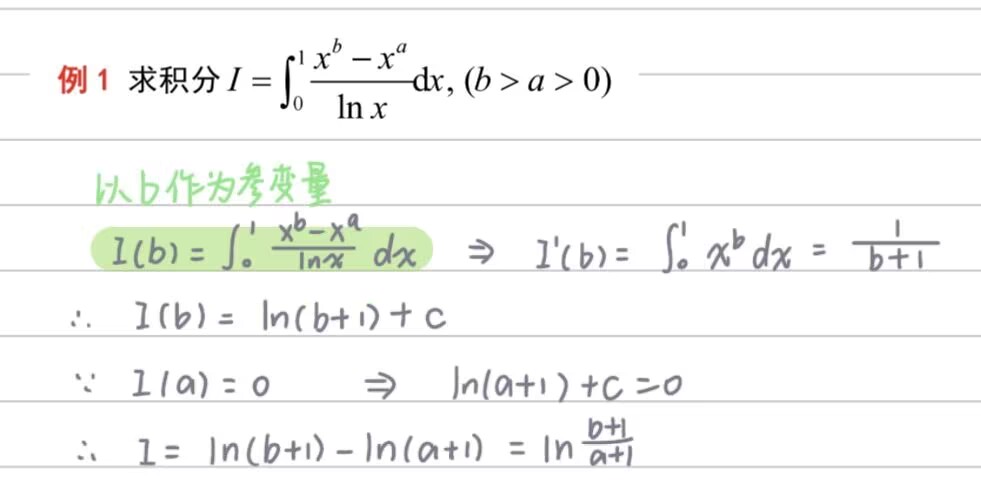 例 1 求积分 I = ∫₀¹ (xᵇ − xᵃ)/(ln x) dx, (b > a > 0)
以b作为参变量
I(b) = ∫₀¹ (xᵇ−xᵃ)/(lnx) dx ⇒ I'(b) = ∫₀¹ xᵇ dx = 1/(b+1)
∴ I(b) = ln(b+1) + c
∵ I(a) = 0 ⇒ ln(a+1) + c = 0
∴ I = ln(b+1) − ln(a+1) = ln (b+1)/(a+1)